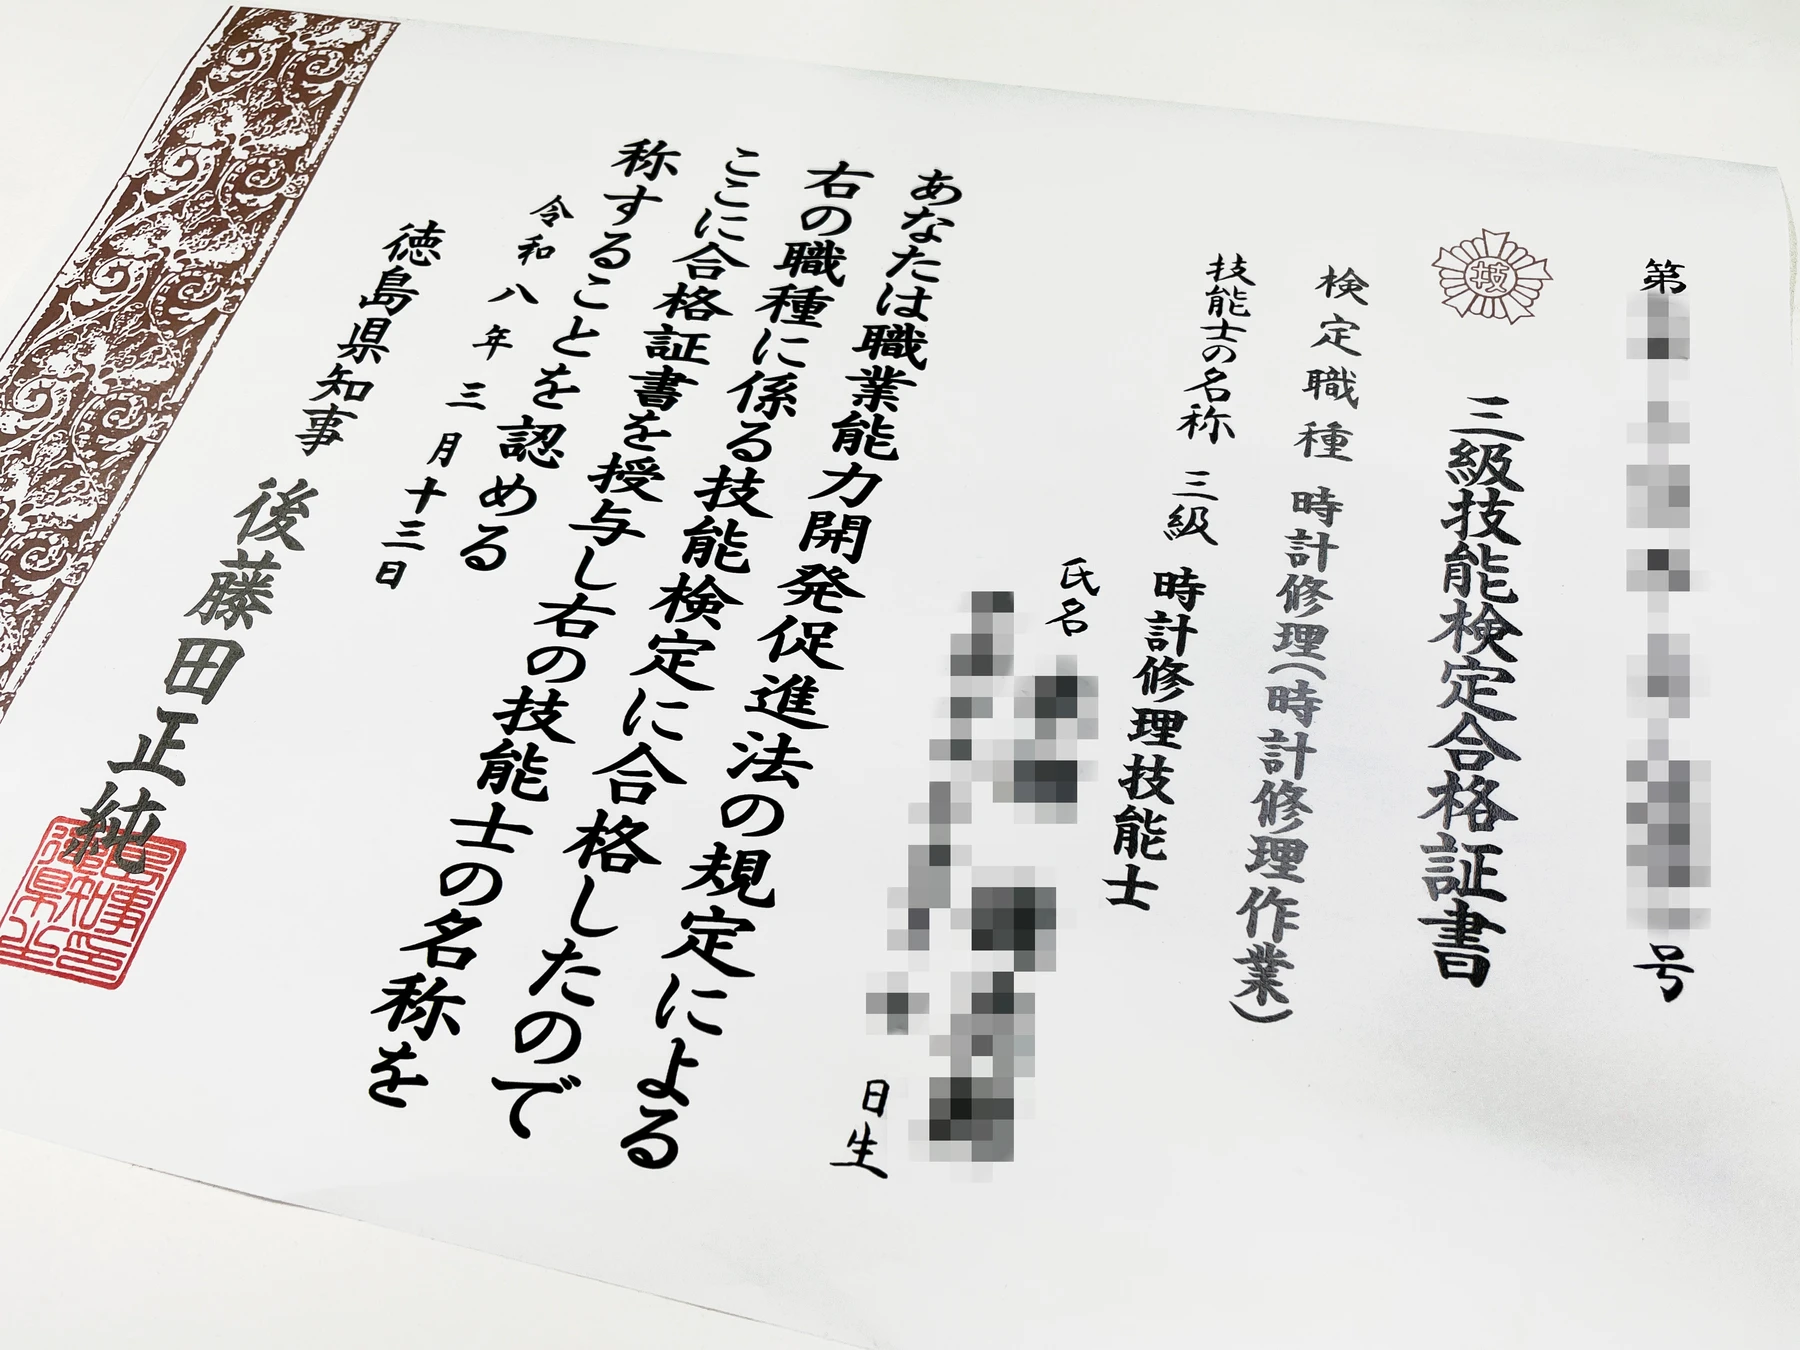 第
号
技
三級技能検定合格証書
検定職種 時計修理(時計修理作業)
技能士の名称 三級 時計修理技能士
氏名
日生
あなたは職業能力開発促進法の規定による
右の職種に係る技能検定に合格したので
ここに合格証書を授与し右の技能士の名称を
称することを認める
令和八年三月十三日
徳島県知事 後藤田正純
徳島県知事之印